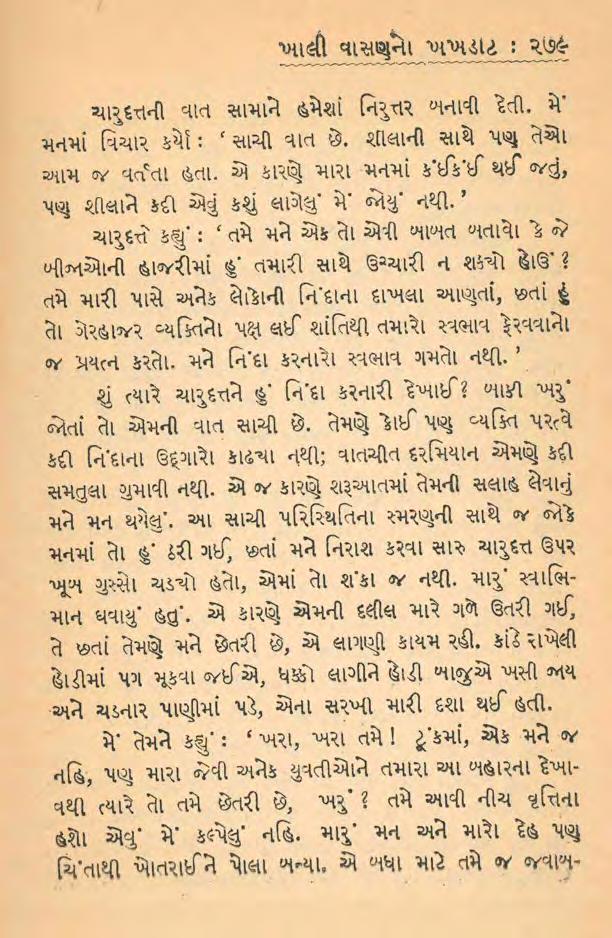 ખાલી વાસણનો ખખડાટ : ૨૭૯
ચારુદત્તની વાત સામાને હમેશાં નિરુત્તર બનાવી દેતી. મેં
મનમાં વિચાર કર્યો : ‘ સાચી વાત છે. શીલાની સાથે પણ તેઓ
આમ જ વર્તતા હતા. એ કારણે મારા મનમાં કંઈકંઈ થઈ જતું,
પણ શીલાને કદી એવું કશું લાગેલું મેં જોયું નથી. ’
ચારુદત્તે કહ્યું : ‘ તમે મને એક તો એવી બાબત બતાવો કે જે
બીજાઓની હાજરીમાં હું તમારી સાથે ઉચ્ચારી ન શકયો હોઉં ?
તમે મારી પાસે અનેક લોકોની નિંદાના દાખલા આણતાં, છતાં હું
તો ગેરહાજર વ્યક્તિનો પક્ષ લઈ શાંતિથી તમારો સ્વભાવ ફેરવવાનો
જ પ્રયત્ન કરતો. મને નિંદા કરનારો સ્વભાવ ગમતો નથી. ’
શું ત્યારે ચારુદત્તને હું નિંદા કરનારી દેખાઈ ? બાકી ખરું
જોતાં તો એમની વાત સાચી છે. તેમણે કોઈ પણ વ્યક્તિ પરત્વે
કદી નિંદાના ઉદ્ગારો કાઢયા નથી; વાતચીત દરમિયાન એમણે કદી
સમતુલા ગુમાવી નથી. એ જ કારણે શરૂઆતમાં તેમની સલાહ લેવાનું
મને મન થયેલું. આ સાચી પરિસ્થિતિના સ્મરણની સાથે જ જોકે
મનમાં તો હું ઠરી ગઈ, છતાં મને નિરાશ કરવા સારુ ચારુદત્ત ઉપર
ખૂબ ગુસ્સો ચડયો હતો, એમાં તો શંકા જ નથી. મારું સ્વાભિ-
માન ઘવાયું હતું. એ કારણે એમની દલીલ મારે ગળે ઉતરી ગઈ,
તે છતાં તેમણે મને છેતરી છે, એ લાગણી કાયમ રહી. કાંઠે રાખેલી
હોડીમાં પગ મૂકવા જઈએ, ધક્કો લાગીને હોડી બાજુએ ખસી જાય
અને ચડનાર પાણીમાં પડે, એના સરખી મારી દશા થઈ હતી.
મેં તેમને કહ્યું : ‘ ખરા, ખરા તમે ! ટૂંકમાં, એક મને જ
નહિ, પણ મારા જેવી અનેક યુવતીઓને તમારા આ બહારના દેખા-
વથી ત્યારે તો તમે છેતરી છે, ખરું ? તમે આવી નીચ વૃત્તિના
હશો એવું મેં કલ્પેલું નહિ. મારું મન અને મારો દેહ પણ
ચિંતાથી ખોતરાઈને પોલા બન્યા. એ બધા માટે તમે જ જવાબ-